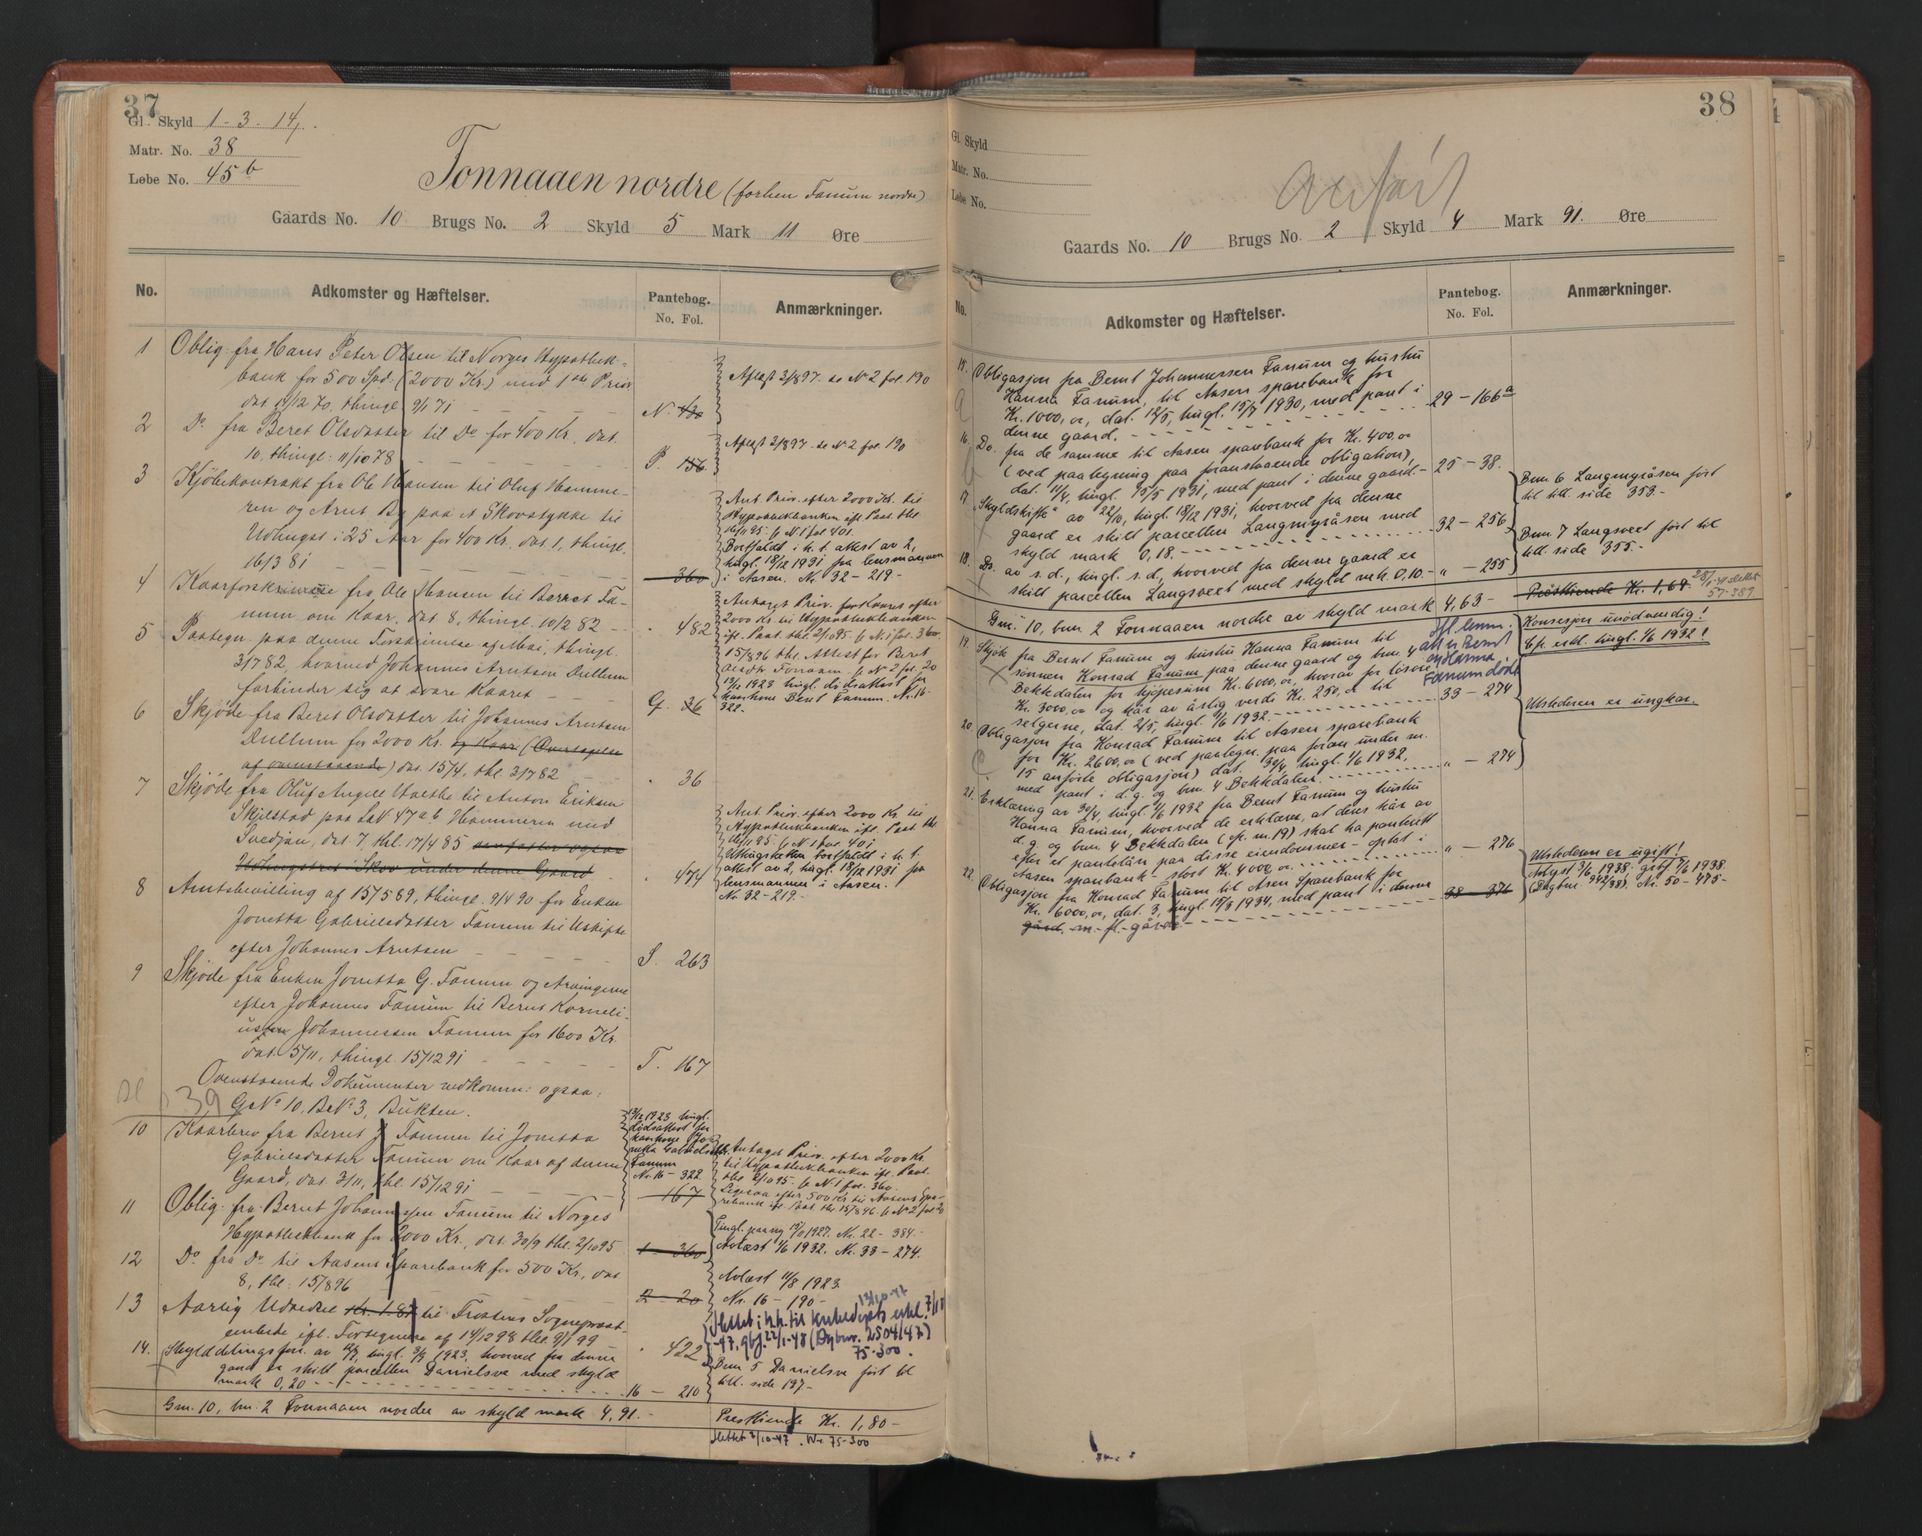 37
Gl. Skyld 1-3-14,
Matr. No. 38
Løbe No. 45b
Tonnaaen nordre (forhen Fanum nordre)
Gaards No. 10 Brugs No. 2 Skyld 5 Mark 11 Øre
No. Adkomster og Hæftelser. Pantebog. No. Fol. Anmærkninger.
1 Oblig. fra Hans Peter Olsen til Norges Hypothek-
bank for 500 Spd. (2000 Kr.) med 1ste Prior
dat 19/12 70, thingl. 9/1 71 N. 420
Aflæst 3/8 97. se No 2 fol. 190
2 Do. fra Beret Olsdatter til Do for 400 Kr. dat.
10, thingl. 11/10 78 P. 156
Aflæst 3/8 97. se No 2 fol. 190
3 Kjøbekontrakt fra Ole Hansen til Oluf Hamme-
ren og Arnt By paa et Skovstykke til
Udhugst i 25 Aar for 400 Kr. dat. 1, thingl.
16/3 81 360
Ant. Prior. efter 2000 Kr. til
Hypothekbanken ifl. Paat. thl.
16/11 95. f. N 1 fol. 401.
Bortfaldt i h. t. attest av 2,
tingl. 18/12 1931 fra lensmannen
i Aasen. Nr. 32-219-
4 Kaarforskrivelse fra Ole Hansen til Berret Fa-
num om Kaar, dat 8, thingl. 10/2 82 - 482
Antaget Prior. for Kaaret efter
2000 Kr. til Hypothekbanken
ifl. Paat. thl. 2/10 95. f. N. 1 fol. 360.
15/8 96 thl. Attest for Beret
Olsdtr Fanum f. No 2 fol. 20
13/12 1923 tingl. dødsattest for
kårkone Berit Fanum. Nr. 16-
322.
5 Paategn. paa denne Forskrivelse af Mai, thingl.
3/7 82, hvorved Johannes Arntsen Dullum
forbinder sig at svare Kaaret
6 Skjøde fra Beret Olsdatter til Johannes Arntsen G. 36
Dullum for 2000 Kr. og Kaar (Overtagelse
af ovenstaaende) dat. 15/4, thl. 3/7 82 · 36
7 Skjøde fra Oluf Angell Valthe til Anton Eriksen
Skjelstad paa Lø. 47 a b Hammeren med
Svedjan, dat 7, thl. 17/4 85
Udhugstret i Skov under denne Gaard · 474
Ant Prior. efter 2000 Kr. til
Hypothekbanken ifl. Paat thl
16/11 95. f. N 1 fol. 401
Uthugstretten bortfaldt i h. t.
attest av 2, tingl. 18/12 1931 fra
lensmannen i Aasen.
Nr. 32-219.-
8 Amtsbevilling af 15/5 89, thingl. 9/4 90 for Enken
Jonetta Gabrielsdatter Fanum til Uskifte
efter Johannes Arntsen S. 263
9 Skjøde fra Enken Jonetta G. Fanum og Arvingerne
efter Johannes Fanum til Bernt Korneli-
us Johannessen Fanum for 1600 Kr.
dat. 5/11, thingl. 15/12 91 T. 167
Ovenstaaende Dokumenter vedkomm. ogsaa:
G No 10, B No 3, Bukten.
39
10 Kaarbrev fra Bernt J. Fanum til Jonetta
Gabrielsdatter Fanum om Kaar af denne
Gaard, dat 3/11, thl. 15/12 91 167
13/12 1923 tingl.
dødsattest for
kaarkone Jo-
netta Gabrielsdtr.
Fanum
Nr. 16-322
Antaget Prior. efter 2000 Kr.
til Hypothekbanken ifl. Paat.
thl 2/10 95. f. N 1 fol. 360.
Ligesaa efter 500 Kr til Aasens Spa-
rebank ifl. Paat thl 15/8 96. f. No 2 fol. 20
11 Oblig. fra Bernt Johannesen Fanum til Norges
Hypothekbank for 2000 Kr., dat. 30/9 thl. 2/10 95 1 360
Tingl. paany 19/9 1927. Nr. 22-384.-
Avlæst 1/6 1932. Nr. 33-274.
12 Do. fra Do. til Aasens Sparebank for 500 Kr., dat
8, thl. 15/8 96 2 20
Avlæst 11/8 1923.
Nr. 16-190-
13 Aarlig Udredsel Kr. 1.87 til Frostens Sognepræst-
embede ifl. Fortegnelse af 14/12 98 thl 9/1 99 · 422
13/10-47
Slettet i h.h. til Kirkedepts erkl. 7/10
-47, gbf. 22/1-48 (Dgbnr. 2504/47)
75-300.
14. Skylddelingsforr. av , tingl. 3/9 1923, hvorved fra denne
gaard er skilt parcellen Danielsve med skyld
mark 0,20 16-210
Bnr. 5 Danielsve ført til
bll. side 197-
Gnr. 10, bnr. 2 Tonnaaen nordre av skyld mark 4,91.-
Presttiende Kr. 1,80-
Slettet 3/10-47. Nr 75-300
38
Gl. Skyld
Matr. No.
Løbe No.
Gaards No. 10 Brugs No. 2 Skyld 4 Mark 91. Øre
No. Adkomster og Hæftelser. Pantebog. No. Fol. Anmærkninger.
15. Obligasjon fra Bernt Johannessen Fanum og hustru
Hanna Fanum, til Aasen sparebank for
Kr. 1000,oo, dat. 12/5, tingl. 15/7 1930, med pant i
denne gaard. 29-166a
16. Do. fra de samme til Aasen sparebank for Kr. 400,oo
(ved paategning paa foranstaaende obligation),
dat. 11/4, tingl. 15/5 1931, med pant i denne gaard- 25-38.
17. "Skyldskifte" av 22/10, tingl. 18/12 1931, hvorved fra denne
gaard er skilt parcellen Langmyråsen med
skyld mark 0,18. 32-256
Bnr. 6 Langmyråsen ført
til bll. side 353.-
18. Do. av s.d., tingl. s.d., hvorved fra denne gaard er
skilt parcellen Langsveet med skyld mk. 0,10.- " -255
Bnr. 7 Langsveet ført til
bll. side 355.-
Gnr. 10, bnr. 2 Tonnaaen nordre av skyld mark 4,63-
Presttiende Kr. 1,69. 28/1-41 slettet
57-389
19. Skjøte fra Bernt Fanum og hustru Hanna Fanum til
sønnen Konrad Fanum paa denne gaard og bnr. 4
Bekkdalen for kjøpesum Kr. 6000,oo, hvorav for løsøre
Kr. 3000,oo og kår av årlig verdi Kr. 250,oo til
selgerne, dat. 2/5, tingl. 1/6 1932. 33-274
att er Bernt
og Hanna
Fanum døde
Konsesjon unødvendig!
Cfr. erkl. tingl. 1/6 1932!
Utstederen er ungkar.
20. Obligasjon fra Konrad Fanum til Aasen sparebank
for Kr. 2600,oo (ved paategn. paa foran under nr.
15 anførte obligasjon) dat. 30/4, tingl. 1/6 1932,
med pant i d.g. og bnr. 4 Bekkdalen. " -274
21. Erklæring av 30/4, tingl. 1/6 1932 fra Bernt Fanum og hustru
Hanna Fanum, hvorved de erklærer, at deres kår av
d.g. og bnr. 4 Bekkdalen (cfr. nr. 19) skal ha panterett
efter et pantelån paa disse eiendommer - optat i
Aasen sparebank - stort Kr. 4000,oo. " -276
22. Obligasjon fra Konrad Fanum til Åsen Sparebank for
Kr. 6000,oo, dat. 3, tingl. 15/3 1934, med pant i denne
gård. m. fl. gårde 38 376
Utstederen er ugift!
Avlyst 3/6 1938. gbf. 7/6 1938.
(Dagbnr. 942/38). Nr. 50-475-